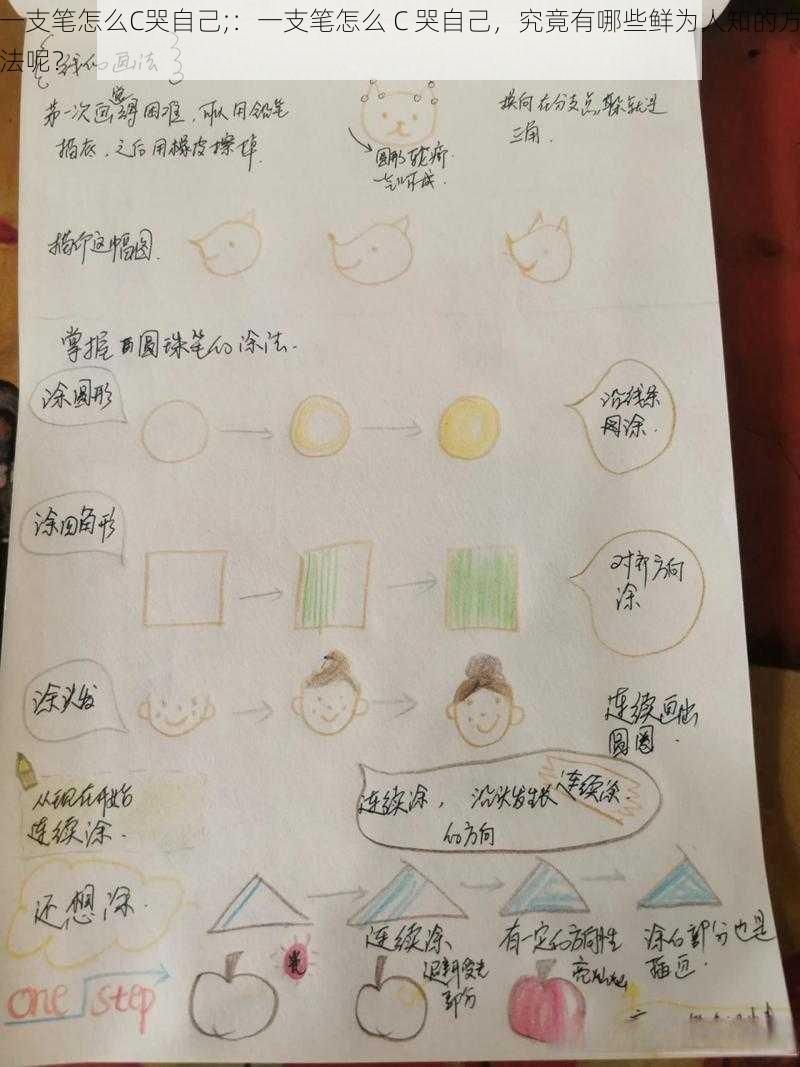 一支笔怎么C哭自己;：一支笔怎么 C 哭自己，究竟有哪些鲜为人知的方
法呢？
画法
第一次画会觉得困难，可以用铅笔
描底，之后用橡皮擦掉．
圆形
横向在分支点，躲
三角．
描印这幅图．
掌握圆珠笔的涂法．
涂圆形
沿线条
涂．
涂四角形
对齐方向
涂
涂头发
连续画出
圆圈．
从现在开始
连续涂．
连续涂， 沿头发生长 连续涂．
的方向
还想涂．
连续涂
有一定的方向性
涂的部分也是
描边．
光
避开受光
部分
亮
one step